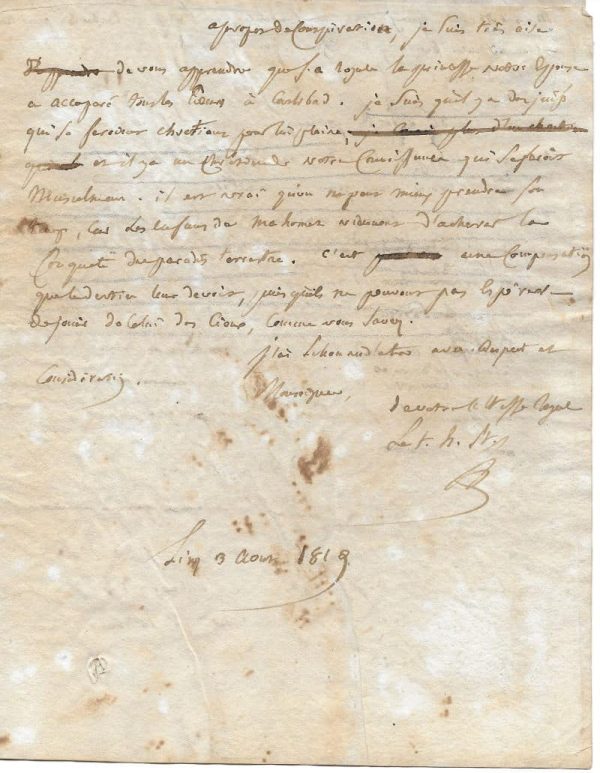 apropos de Conspiration, je suis très aise
de vous apprendre que S. a royale la princesse votre Epouse
a accaparé tous les Cœurs à Carlsbad. je sais qu'il y a des juifs
qui se feroient chrétiens pour lui plaire,
et il y a un Chrétien de notre Connaissance qui se feroit
Musulman. il est vrai qu'on ne peut mieux prendre son
tems, car les Enfans de Mahomet viennent d'achever la
Conquête du paradis terrestre. c'est une Compensation
que le destin leur devoit, puisqu'ils ne peuvent pas Espérer
de jouir de Celui des Cieux, Comme vous savez.
j'ai l'honneur d'être avec Respect et
Considération.
Monseigneur,
de votre altesse Royale
Le t. h. St.
3 Aout 1819